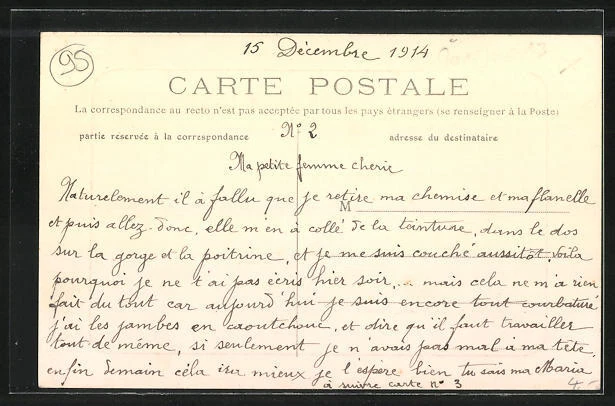 15 Décembre 1914
95
CARTE POSTALE
La correspondance au recto n'est pas acceptée par tous les pays étrangers (se renseigner à la Poste)
partie réservée à la correspondance
N° 2
adresse du destinataire
Ma petite femme cherie
Naturelement il à fallu que je retire ma chemise et ma flanelle
M
et puis allez donc, elle m'en à collé de la teinture, dans le dos
sur la gorge et la poitrine, et je me suis couché aussitôt, voila
pourquoi je ne t'ai pas ecris hier soir,... mais cela ne m'a rien
fait du tout car aujourd'hui je suis encore tout courbaturé
j'ai les jambes en caoutchouc, et dire qu'il faut travailler
tout de même, si seulement je n'avais pas mal à ma tête,
enfin demain céla ira mieux je l'espère bien tu sais ma Maria
à suivre carte n° 3
4.-